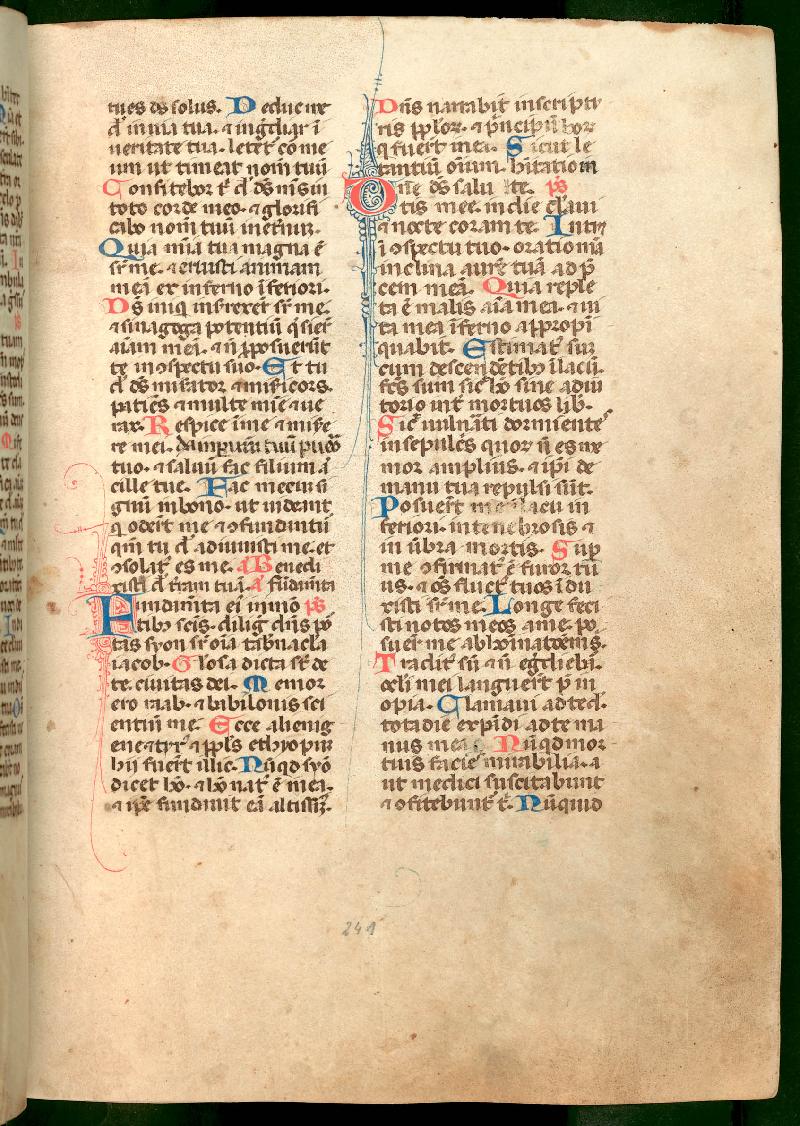 tues ds̄ solus. Deduc me
d̄ in uia tua. ⁊ ingdiar ī
ueritate tua. letet̄ cor me
um ut timeat nom̄ tuū
Confitebor t̄ d̄ ds̄ ms̄ in
toto corde meo. ⁊ glorifi
cabo nom̄ tuū in et̄nū.
Quia mīa tua magna ē
sr̄ me. ⁊ eruisti animam
meā ex inferno īferiori.
Ds̄ iniq̄ insrexer̄t sr̄ me.
⁊ sinagoga potentiū q̄sier̄
aīam meā. ⁊ n̄ p̄posuerūt
te in ɔspectu suo. Et tu
d̄ ds̄ miṡator ⁊ miṡicors.
patiēs ⁊ multe mīe ⁊ ue
rax. Respice ī me ⁊ miṡe
re mei. da impium tuū puero
tuo. ⁊ saluū fac filium ā
cille tue. Fac mecum si
gnū in bono. ut uideant
q̄ oder̄t me ⁊ ɔfundāntū
qm̄ tu d̄ adiuuisti me. et
ɔsolat̄ es me. Benedi
xisti d̄ t̄ram tuā. fūdam̄ta
Fundam̄ta ei in mō ps̄
tibȝ scīs. diliḡ dn̄s por
tas syon sr̄ oīa tab̄nacla
iacob. Glōsa dicta sr̄ de
te. ciuitas dei. Memor
ero raab. ⁊ babilonis sci
entiū me. Ecce alienig
ene ⁊ tyr̄ ⁊ pp̄ls ethyopum
hii fuer̄t illic. Nūqd syō
dicet hō. ⁊ hō nat̄ ē in ea.
⁊ ip̄e fundauit eā altissiꝫ.
Dn̄s narrabit in scriptu
ris pp̄lorꝫ. ⁊ p̄ncipū horꝫ
q̄ fuer̄t in ea. Sicut le
tantiū oīum. hitatio in
One ds̄ salu te. ps̄
tis mee. in die clam̄
⁊ nocte coram te. Intret
ī ɔspectu tuo. oratio mā
inclina aurē tuā ad p̄
cem meā. Quia reple
ta ē malis aīa mea. ⁊ ui
ta mea īferno appropī
quabit. Estimat̄ sum
cum descendētibȝ ī lacū.
fc̄s sum sic̄ hō sine adiu
torio int̄ mortuos lib̄.
Sic̄ uuln̄ati dormiente
in sepulc̄s quorꝫ n̄ es me
mor amplius. ⁊ ip̄i de
manu tua repulsi sūt.
Posuer̄t me ī lacu in
feriori. in tenebrosis ⁊
in ūbra mortis. Sup
me ɔfirmat̄ ē furor tu
us. ⁊ oēs fluct̄ tuos īdu
xisti sr̄ me. Longe feci
sti notos meos a me. po
suer̄t me abhōinatōem s̄.
Tradit̄ sū ⁊ n̄ eḡdiebā.
oc̄li mei languer̄t p̄ in
opia. Clamaui ad te d̄.
tota die expādi ad te ma
nus meas. Nūqd mor
tuis facies mirabilia. a
ut medici suscitabunt
⁊ ɔfitebunt̄ t̄. Nūquid
241